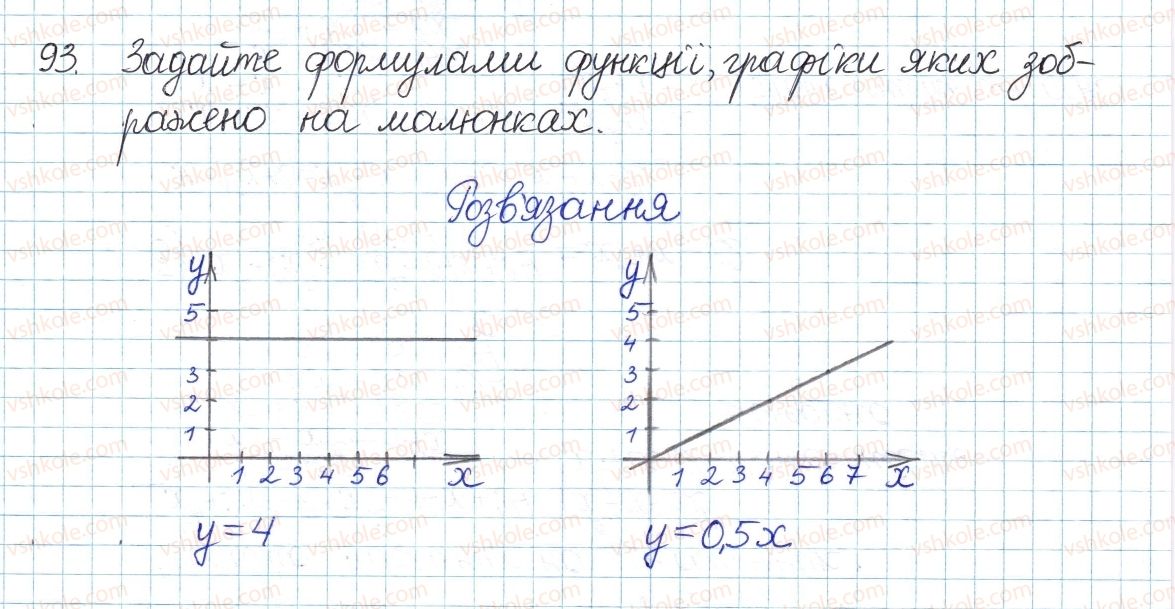 93. Задайте формулами функції, графіки яких зоб-
ражено на малюнках.
Розв'язання
y
5
3
2
1
1 2 3 4 5 6 x
y = 4
y
5
4
3
2
1
1 2 3 4 5 6 7 x
y = 0,5x
vshkole.com